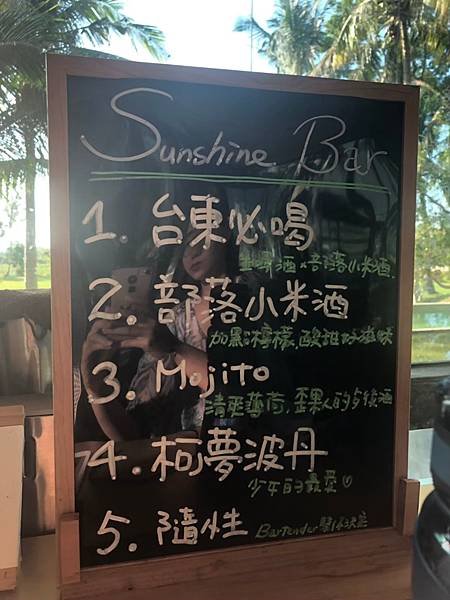 Sunshine Bar
1. 台東必喝
生啤酒×部落小米酒
2. 部落小米酒
加點檸檬,酸甜好滋味
3. Mojito
清爽薄荷,歪果人的午後酒
4. 柯夢波丹
少女的最愛♡
5. 隨性
Bartender 幫你決定